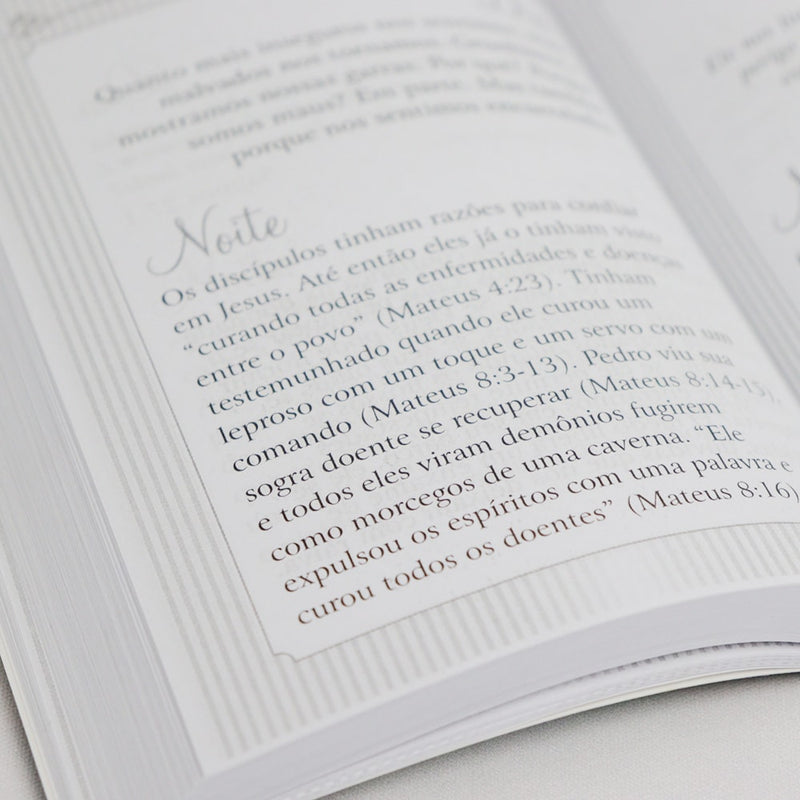 Quanto mais inseguros nos sentimos
malvados nos tornamos.
mostramos nossas garras. Por quê?
somos maus? Em parte.
porque nos sentimos
Noite
Os discípulos tinham razões para confiar
em Jesus. Até então eles já o tinham visto
“curando todas as enfermidades e doenças
entre o povo” (Mateus 4:23). Tinham
testemunhado quando ele curou um
leproso com um toque e um servo com um
comando (Mateus 8:3-13). Pedro viu sua
sogra doente se recuperar (Mateus 8:14-15),
e todos eles viram demônios fugirem
como morcegos de uma caverna. “Ele
expulsou os espíritos com uma palavra e
curou todos os doentes” (Mateus 8:16)